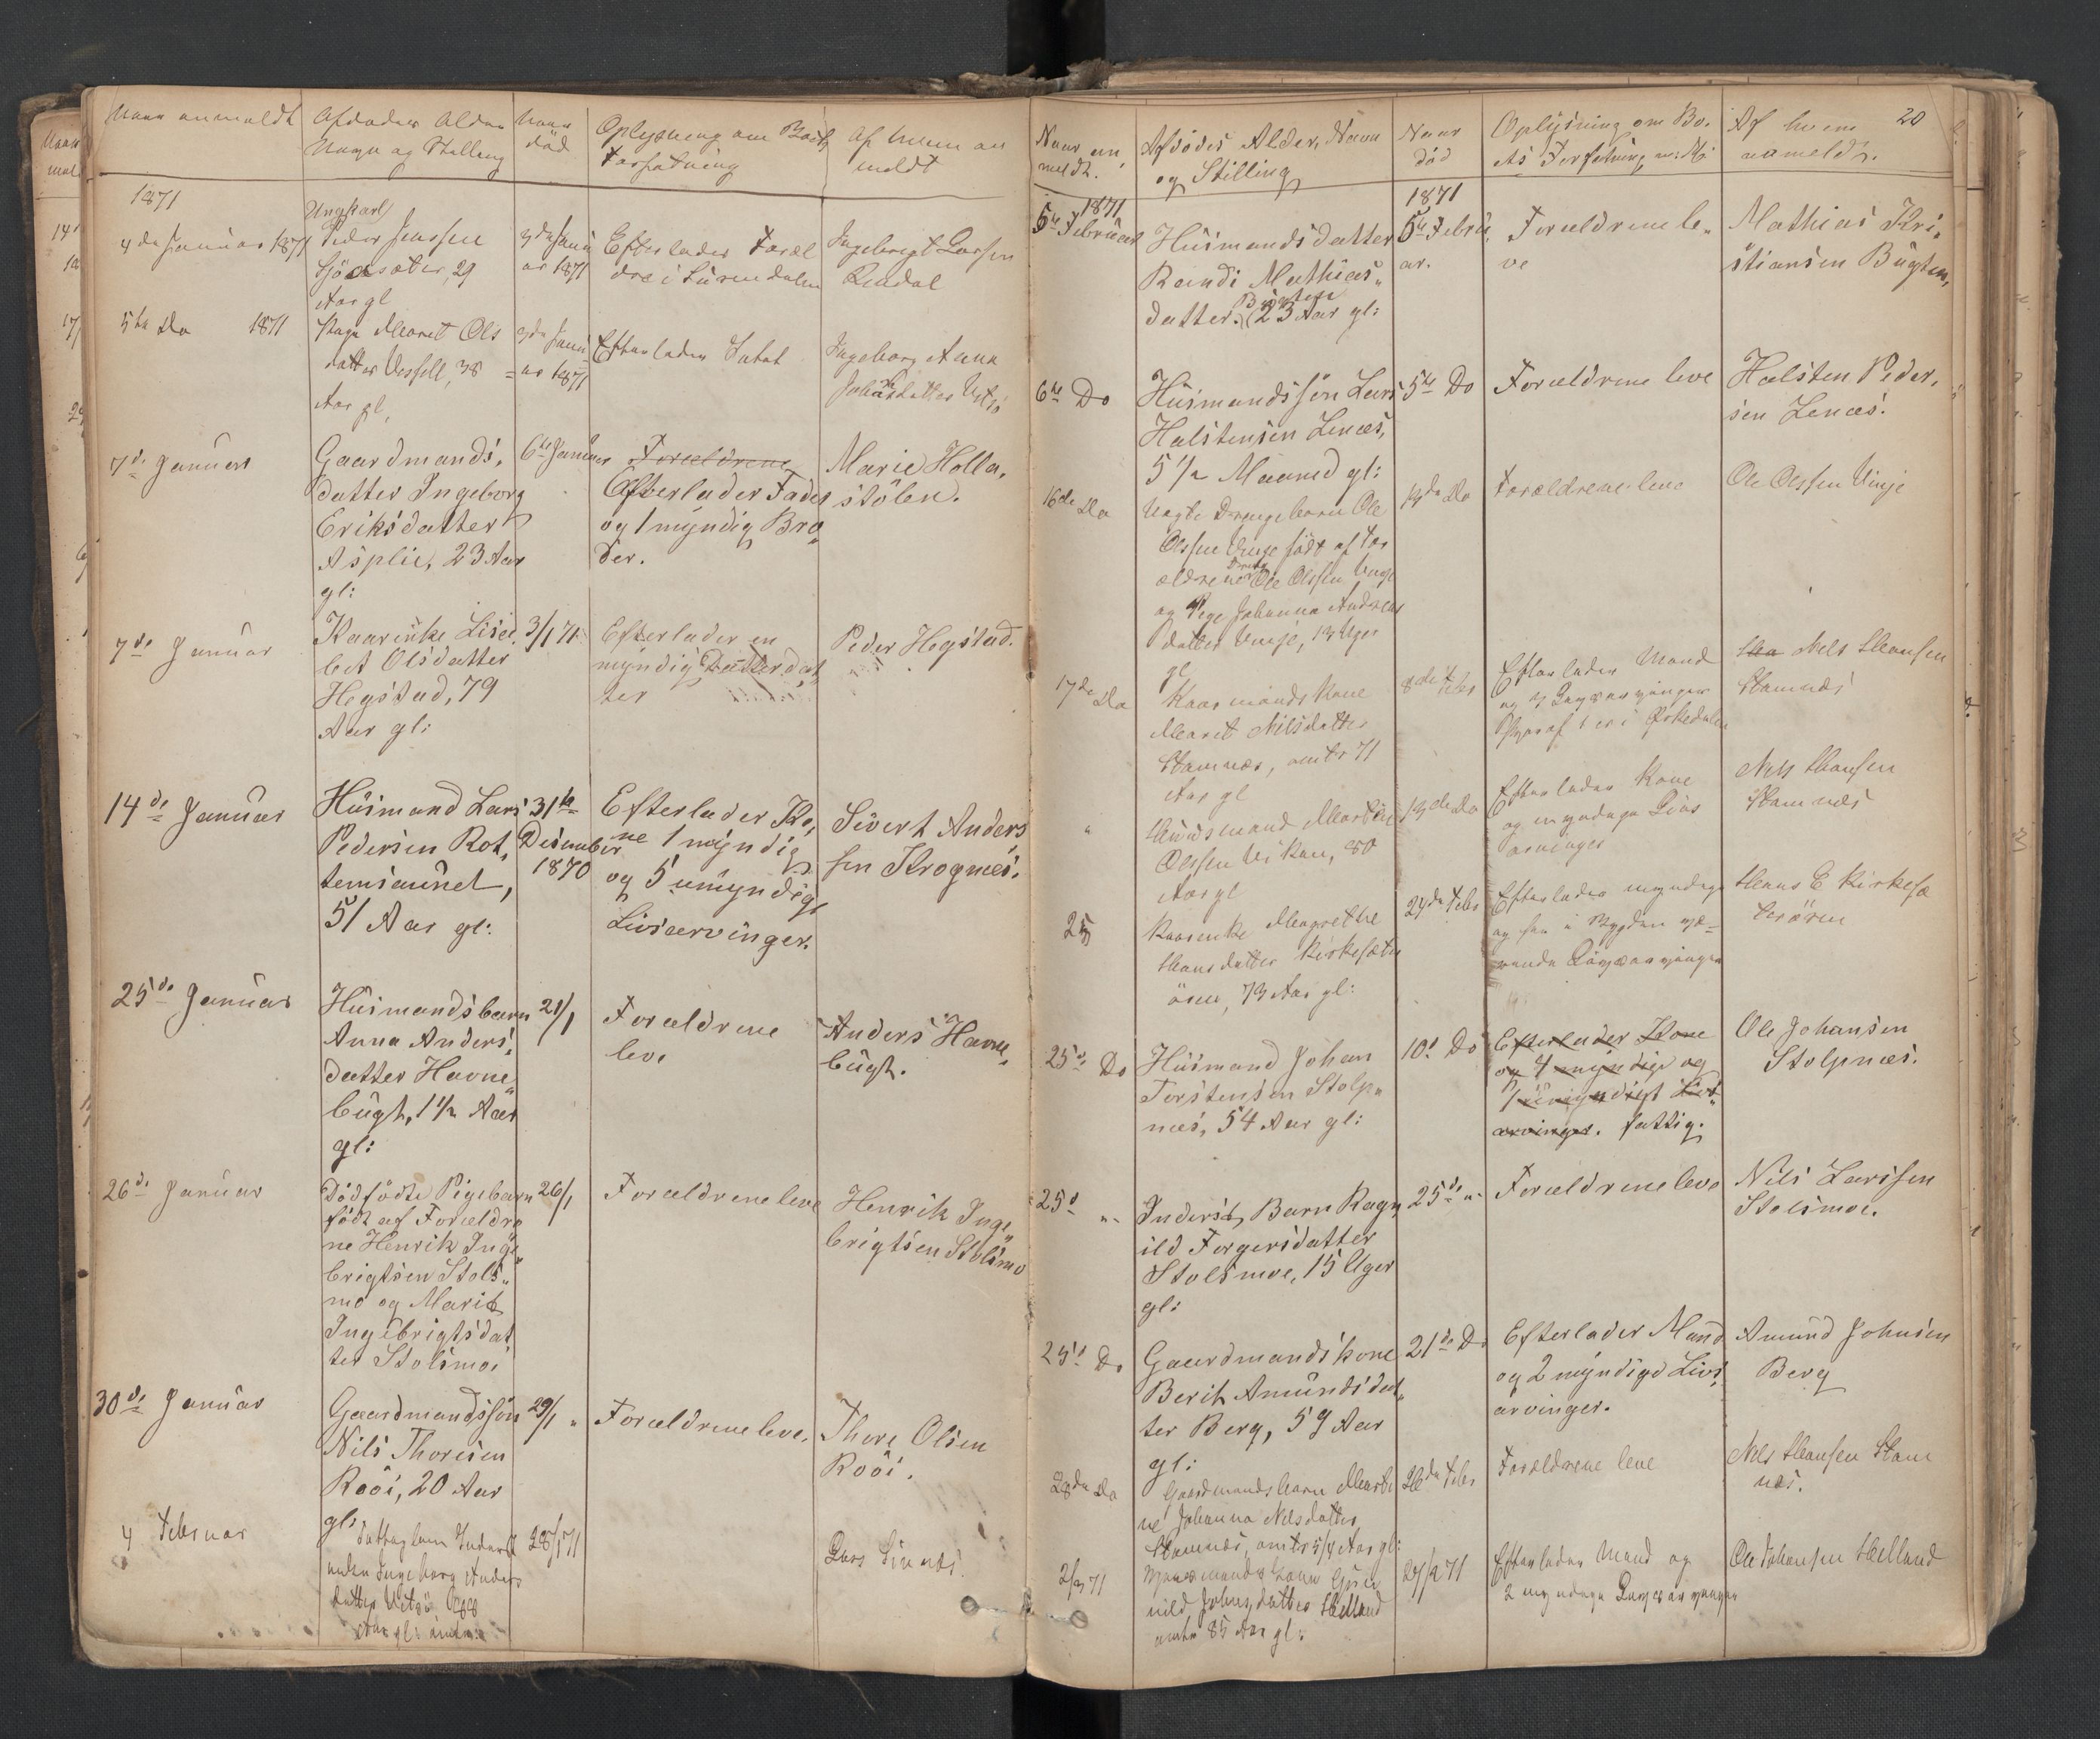 Naar anmeldt
Afdødes Alder
Navn og Stilling
Naar
död
Oplysning om Boets
Forfatning
Af hvem an
meldt
1871
4de Januar 1871
Ungkarl
Peder Jenssen
Sjöasæter, 29
Aar gl
3de Janu
ar 1871
Efterlader Foræl
dre i Surendalen
Ingebrigt Larsen
Rindal
5te Do 1871
Pige Maret Ols
datter Vessell, 38
Aar gl,
3de Janu
ar 1871
Efterlader Intet
Ingeborg Anna
7de Januar
Gaardmands,
datter Ingeborg
Eriksdatter
Asplie, 23 Aar
gl:
6te Januar
Forældrene
Efterlader Fader
og 1 myndig Bro„
der.
Marie Holla,
stölen.
7de Januar
Kaarinke Lisei,
bet Olsdatter
Hegstad, 79
Aar gl:
3/1 71
Efterlader en
myndig Datter dat„
ter
Peder Hegstad.
14de Januar
Husmand Lars
Pedersen Rot,
temsaunet,
51 Aar gl:
31te
Desember
1870
Efterlader Ko„
ne 1 myndig
og 5 umyndige
Livsarvinger.
Sivert Anders
sen Krognes.
25de Januar
Husmandsbarn
Anna Anders„
datter Havne„
bugt, 1 1/2 Aar
gl:
21/1
Forældrene
leve
Anders Havne„
bugt.
26de Januar
Dödfödte Pigebarn
födt af Forældre
ne Henrik Inge„
brigtsen Stols„
mo og Marit
Ingebrigtsdat„
ter Stolsmo
26/1
Forældrene leve
Henrik Inge„
brigtsen Stolsmo
30de Januar
Gaardmandssön
Nils Thoresen
Rööi, 20 Aar
gl:
29/1 „
Forældrene leve.
Thore Olsen
Rööi.
4 Februar
Ingeborg Anders
datter
28/1 71
Lars
20
Naar an„
meldt.
Afdödes Alder, Navn
og Stilling
Naar
död
Oplysning om Bo„
ets Forfatning m: M:
Af hvem
anmeldt.
1871
5te Februar
Husmandsdatter
Randi Mathias„
datter Bugten
23 Aar gl:
1871
5te Febru„
ar.
Forældrene le„
ve
Mathias Kri„
stiansen Bugten,
6te Do
Husmandssön Lars
Halstensen Lenæs,
5 1/2 Maaned gl:
5te Do
Forældrene leve
Halsten Peder„
sen Lenæs.
16de Do
Uægte Drengebarn Ole
Olssen Vinje födt af For
ældrene Dreng Ole Olssen Vinje
og Pige Johanna Andreas
datter Vinje, 13 Uger
gl
14de Do
Forældrene leve
Ole Olssen Vinje
17de Do
Kaarmands Kone
Maret Nilsdatter
Stamnes, omtr 71
Aar gl
8de Febr
Efterlader Mand
og 4 Livsarvinger
hvoraf 1 er i Orkedalen
Nels Hansen
Stamnæs
„
Huusmand Martin
Olssen Vikan, 80
Aar gl
13de Do
Efterlader Kone
og myndige Livs
arvinger
Nels Hansen
Stamnæs
25
Kaarenke Margrethe
Hansdatter Kirkesæter
ören, 73 Aar gl:
24de Febr
Efterlader myndige
og her i Bygden væ=
rende Livsarvinger
Hans E Kirkesæ
terören
25de Do
Husmand Johan
Torstensen Stolp„
næs, 54 Aar gl:
10de Do
Efterlader Kone
og 4 myndige og
1 umyndigt Livs„
arvinger. fattig.
Ole Johansen
Stolpnæs.
25d „
Inderst Barn Ragn„
ild Torgersdatter
Stolsmoe, 15 Uger
gl:
25de „
Forældrene leve
Nils Larssen
Stolsmoe.
25d Do
Gaardmandskone
Berit Amundsdat„
ter Berg, 59 Aar
gl:
21de Do
Efterlader Mand
og 2 myndige Livs„
arvinger.
Amund Johnsen
Berg
28de Do
Gaardmandsbarn Marti
ne Johanna Nelsdatter
Stamnæs, omtr 5/4 Aar gl:
26de Febr
Forældrene leve
Nels Hansen Stam
næs.
2/3 71
Johnsdatter Helland
omtr 85 Aar gl:
27/2 71
Efterlader Mand og
2 myndige Livsarvinger
Ole Johansen Helland